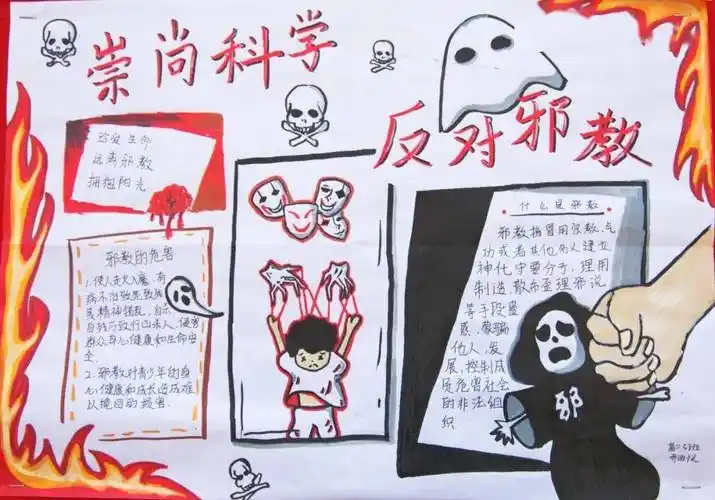 崇尚科学
反对邪教
珍爱生命
远离邪教
拥抱阳光
邪教的危害
1.使人走火入魔,有
病不治致死致残
民精神错乱,自杀
自残乃致行凶杀人,侵害
群众身心健康和生命安
全.
2.邪教对青少年的身
心健康和成长造成难
以挽回的损害.
什么是邪教
邪教指冒用宗教、气
功或者其他名义建立
神化守要分子,理用
制造散布歪理邪说
等手段蛊
惑、蒙骗
他人,发
展、控制成
员危害社会
的非法组
织
邪
高二